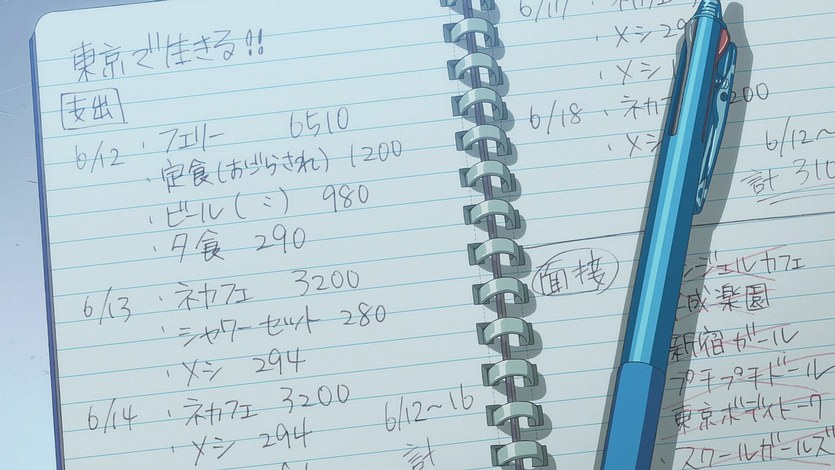 東京で生きる!!
支出
6/12 ・フェリー 6510
・定食(おごらされ) 1200
・ビール( 〃 ) 980
・夕食 290
6/13 ・ネカフェ 3200
・シャワーセット 280
・メシ 294
6/14 ・ネカフェ 3200
・メシ 294
6/12~16
計
6/17 ・ネカフェ
・メシ 29
・メシ
6/18 ・ネカフェ 200
・メシ
6/12~
計 310
面接
ンジェルカフェ
成楽園
新宿ガール
プチプチドール
東京ボディトーク
・スクールガールズ